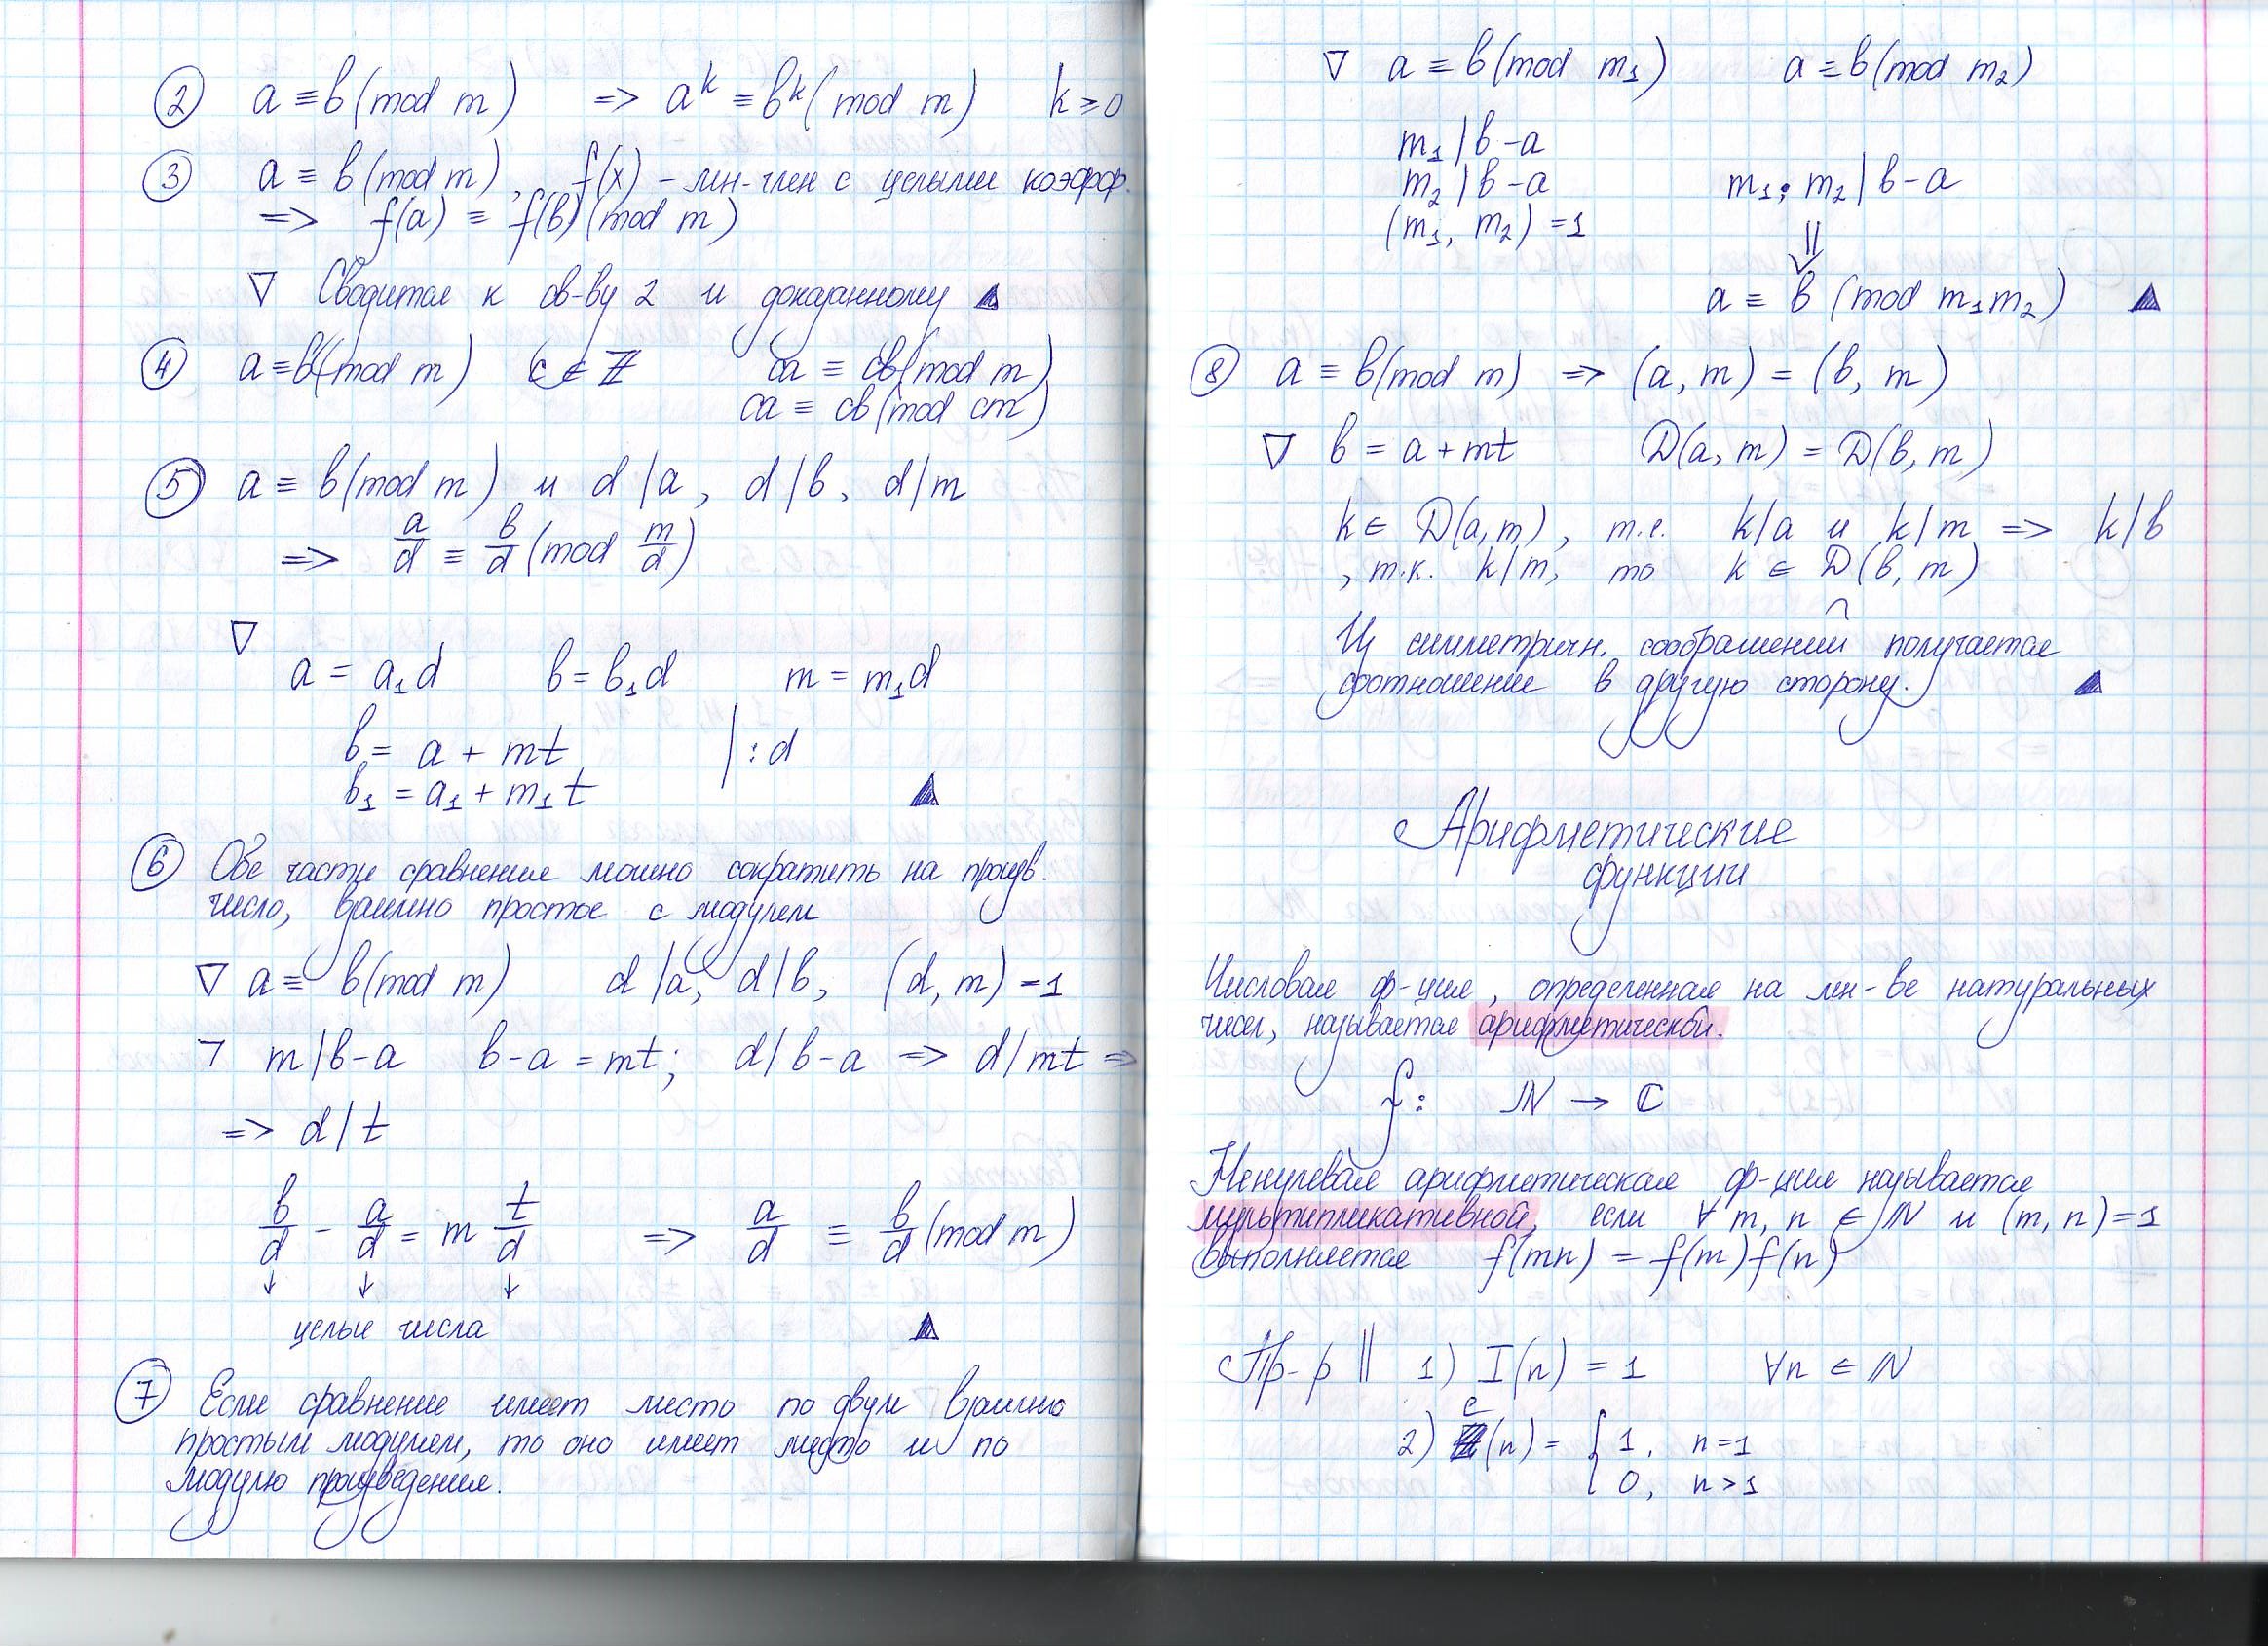 ② a ≡ b (mod m) => a^k ≡ b^k (mod m) k ≥ 0
③ a ≡ b (mod m), f(x) – мн-член с целыми коэфф.
=> f(a) ≡ f(b) (mod m)
∇ Сводится к св-ву 2 и доказанному ▲
④ a ≡ b (mod m) c ∈ ℤ ca ≡ cb (mod m)
ca ≡ cb (mod cm)
⑤ a ≡ b (mod m) и d | a, d | b, d | m
=> a/d ≡ b/d (mod m/d)
∇
a = a₁d b = b₁d m = m₁d
b = a + mt | : d
b₁ = a₁ + m₁t ▲
⑥ Обе части сравнения можно сократить на произв.
число, взаимно простое с модулем
∇ a ≡ b (mod m) d | a, d | b, (d, m) = 1
ㄱ m | b - a b - a = mt; d | b - a => d | mt =>
=> d | t
b/d - a/d = m t/d => a/d ≡ b/d (mod m)
↓ ↓ ↓
целые числа ▲
⑦ Если сравнение имеет место по двум взаимно
простым модулям, то оно имеет место и по
модулю произведения.
∇ a ≡ b (mod m₁) a ≡ b (mod m₂)
m₁ | b - a
m₂ | b - a m₁; m₂ | b - a
(m₁, m₂) = 1
⇓
a ≡ b (mod m₁m₂) ▲
⑧ a ≡ b (mod m) => (a, m) = (b, m)
∇ b = a + mt D(a, m) = D(b, m)
k ∈ D(a, m), т.е. k | a и k | m => k | b
, т.к. k | m, то k ∈ D(b, m)
Из симметричн. соображений получается
соотношение в другую сторону. ▲
Арифметические
функции
Числовая ф-ция, определенная на мн-ве натуральных
чисел, называется арифметической.
f: ℕ → ℂ
Ненулевая арифметическая ф-ция называется
мультипликативной, если ∀ m, n ∈ ℕ и (m, n) = 1
выполняется f(mn) = f(m) f(n)
Пр-р || 1) I(n) = 1 ∀n ∈ ℕ
2) e(n) = { 1, n = 1
0, n > 1